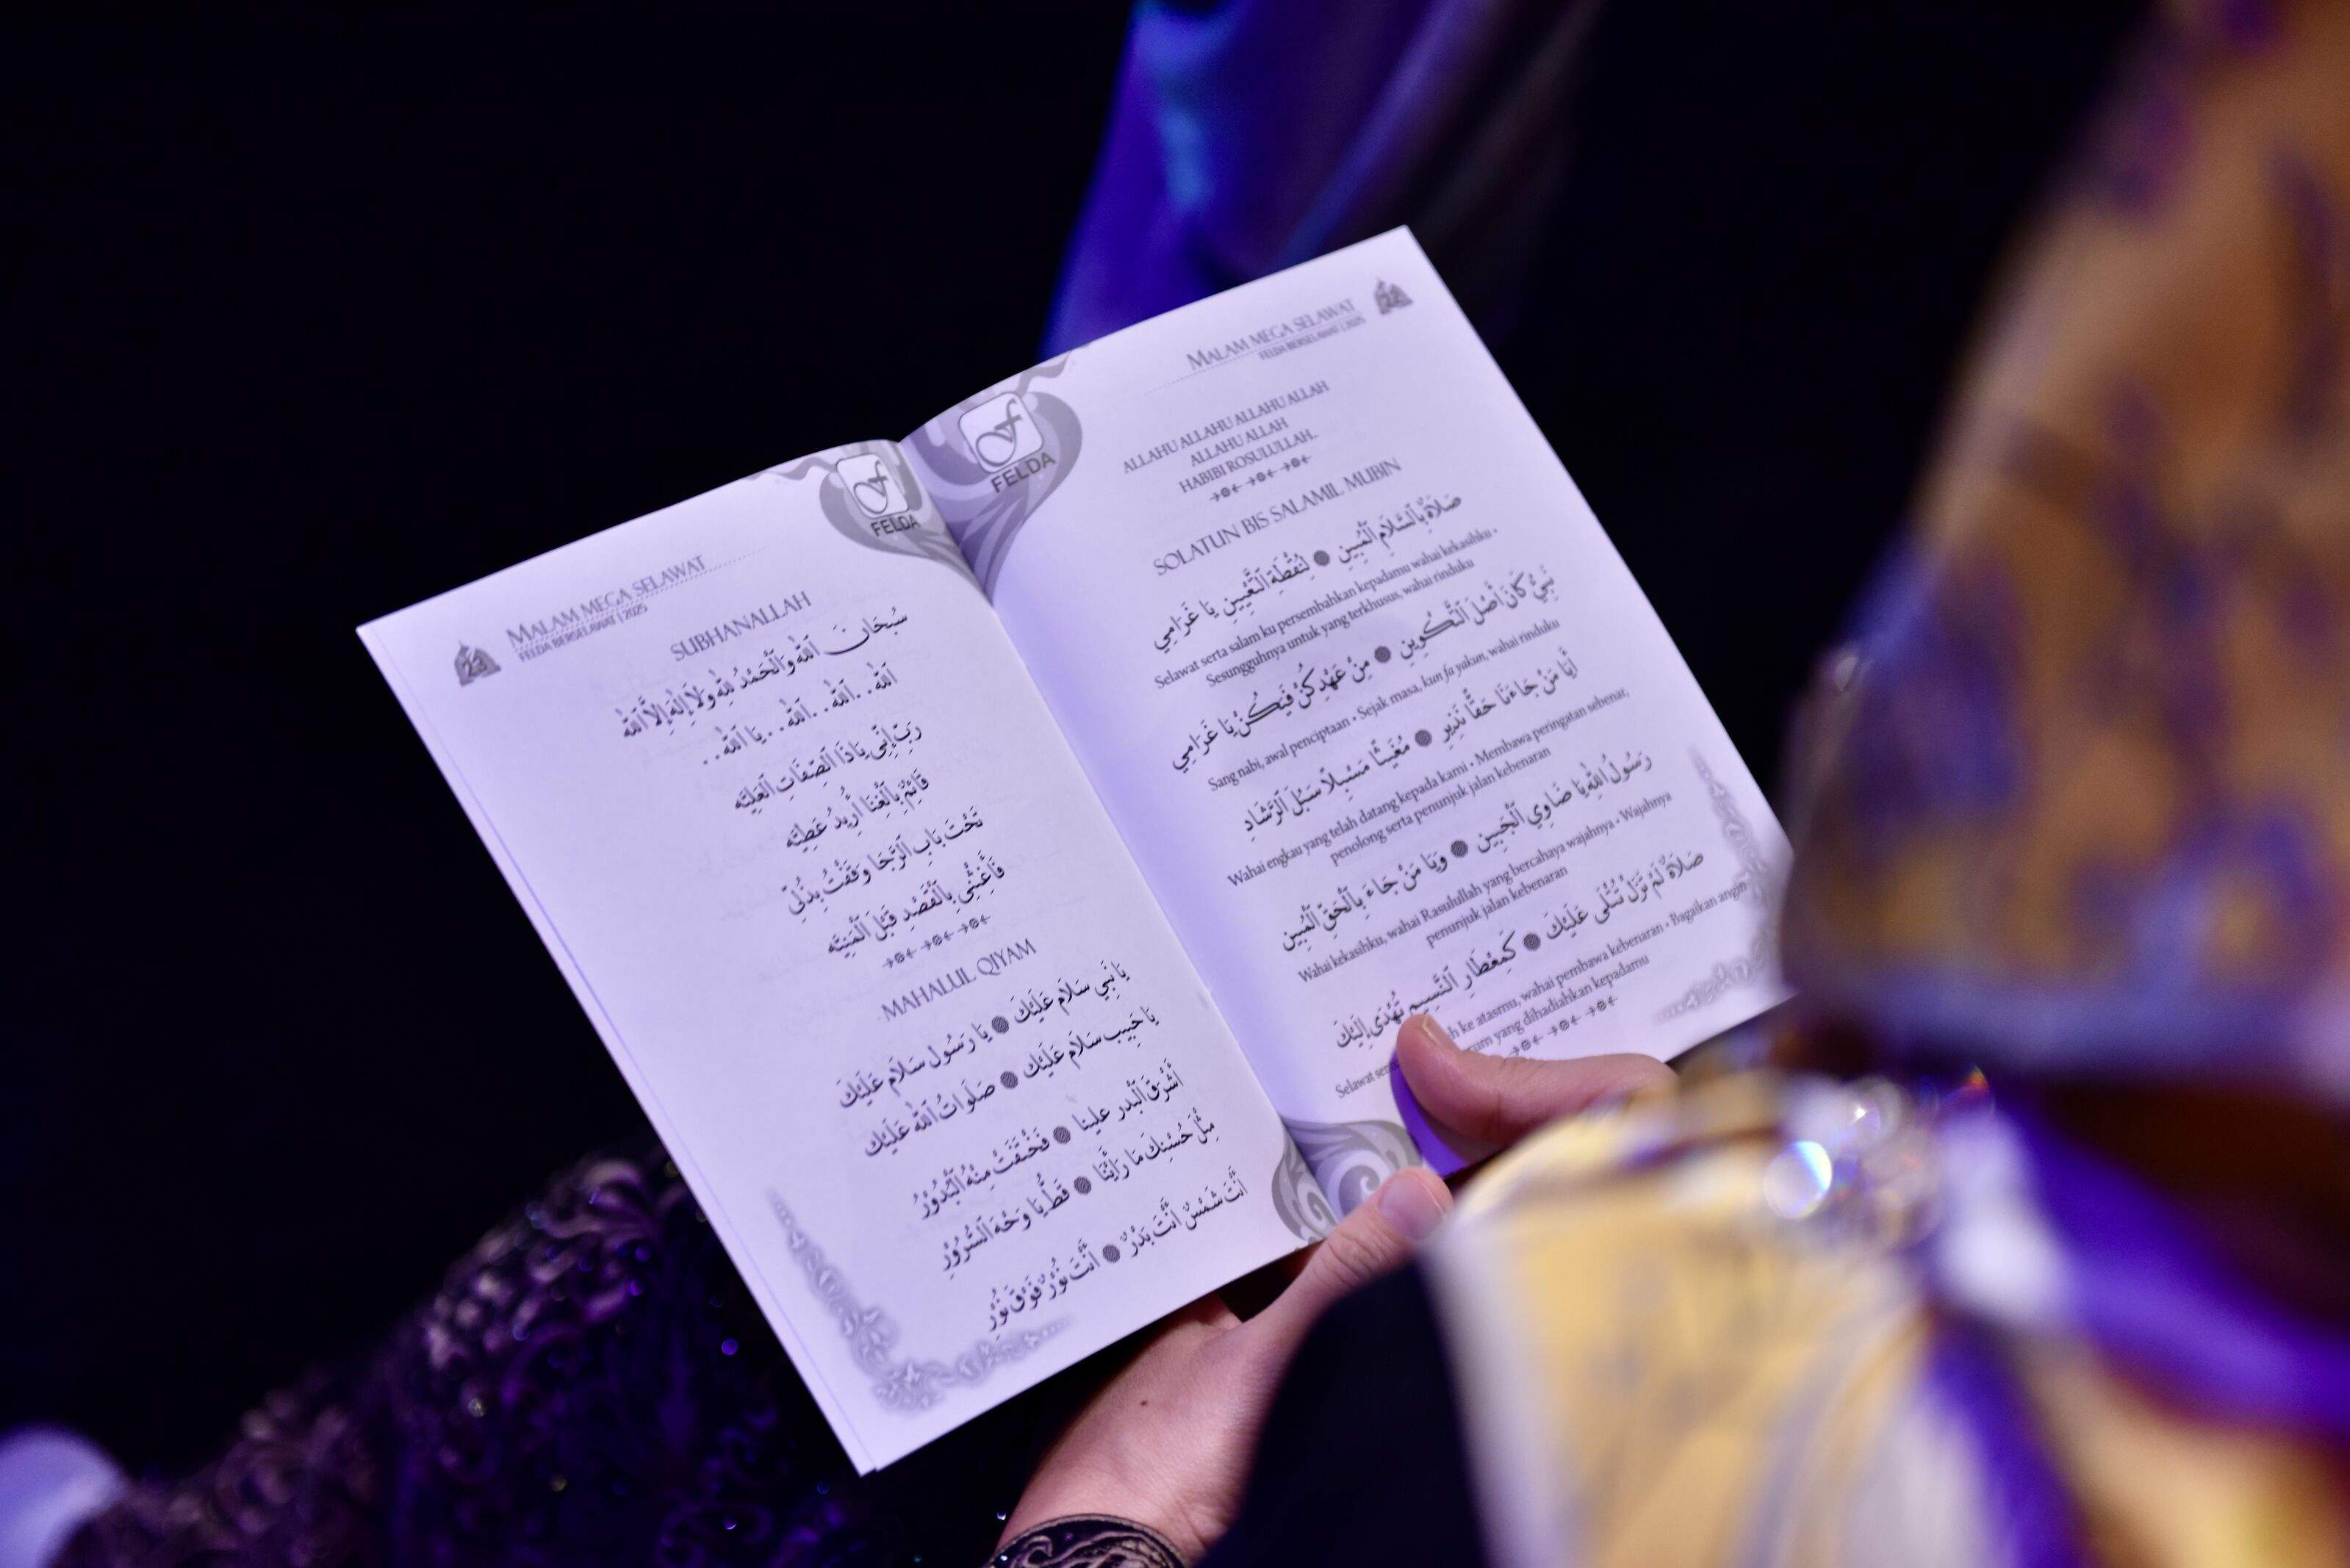 MALAM MEGA SELAWAT
FELDA BERSELAWAT | 2025
FELDA
SUBHANALLAH
سُبْحَانَ اللّٰه وَالْحَمْدُ لِلّٰهِ وَلَا إِلٰهَ إِلَّا اللّٰه
اَللّٰه..اَللّٰه..اَللّٰه..يَا اَللّٰه..
رَبِّ إِنِّي يَا ذَا الصِّفَاتِ الْعَلِيَّه
قَائِمٌ بِالْفِنَا أُرِيدُ عَطِيَّه
تَحْتَ بَابِ الرَّجَا وَقَفْتُ بِذُلِّي
فَأَغِثْنِي بِالْقَصْدِ قَبْلَ الْمَنِيَّه
MAHALUL QIYAM
يَا نَبِي سَلَام عَلَيْكَ ● يَا رَسُول سَلَام عَلَيْكَ
يَا حَبِيب سَلَام عَلَيْكَ ● صَلَوَاتُ اللّٰه عَلَيْكَ
أَشْرَقَ الْبَدْر علينا ● فَخْتَفَتْ مِنْهُ الْبُدُوْرُ
مِثْلَ حُسْنِكَ مَا رَأَيْنَا ● قَطُّ يَا وَجْهَ السُّرُوْرِ
أَنْتَ شَمْسٌ أَنْتَ بَدْرٌ ● أَنْتَ نُوْرٌ فَوْقَ نُوْرٍ
MALAM MEGA SELAWAT
FELDA BERSELAWAT | 2025
FELDA
ALLAHU ALLAHU ALLAHU ALLAH
ALLAHU ALLAH
HABIBI ROSULULLAH..
SOLATUN BIS SALAMIL MUBIN
صَلَاةٌ بِالسَّلَامِ الْمُبِينِ ● لِنُقْطَةِ التَّعْيِينِ يَا غَرَامِي
Selawat serta salam ku persembahkan kepadamu wahai kekasihku •
Sesungguhnya untuk yang terkhusus, wahai rinduku
نَبِيٌّ كَانَ أَصْلَ التَّكْوِينِ ● مِنْ عَهْدِ كُنْ فَيَكُنْ يَا غَرَامِي
Sang nabi, awal penciptaan • Sejak masa, kun fa yakun, wahai rinduku
أَيَا مَنْ جَاءَنَا حَقًّا نَذِيرِ ● مُغِيثًا مَسْبِلًا سُبُلَ الرَّشَادِ
Wahai engkau yang telah datang kepada kami • Membawa peringatan sebenar,
penolong serta penunjuk jalan kebenaran
رَسُولُ اللّٰه يَا ضَاوِي الْجَبِينِ ● وَيَا مَنْ جَاءَ بِالْحَقِّ الْمُبِينِ
Wahai kekasihku, wahai Rasulullah yang bercahaya wajahnya • Wajahnya
penunjuk jalan kebenaran
صَلَاةٌ لَمْ تَزَلْ تُتْلَى عَلَيْكَ ● كَمِعْطَارِ النَّسِيمِ تُهْدَى إِلَيْكَ
Selawat ke atasmu, wahai pembawa kebenaran • Bagaikan angin
yang dihadiahkan kepadamu